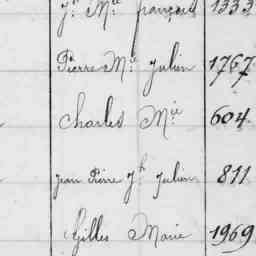 Jn Mie françois 1333
Pierre Mie Julien 1767
Charles Mie 604
Jean Pierre Jh Julien 811
Gilles Marie 1969